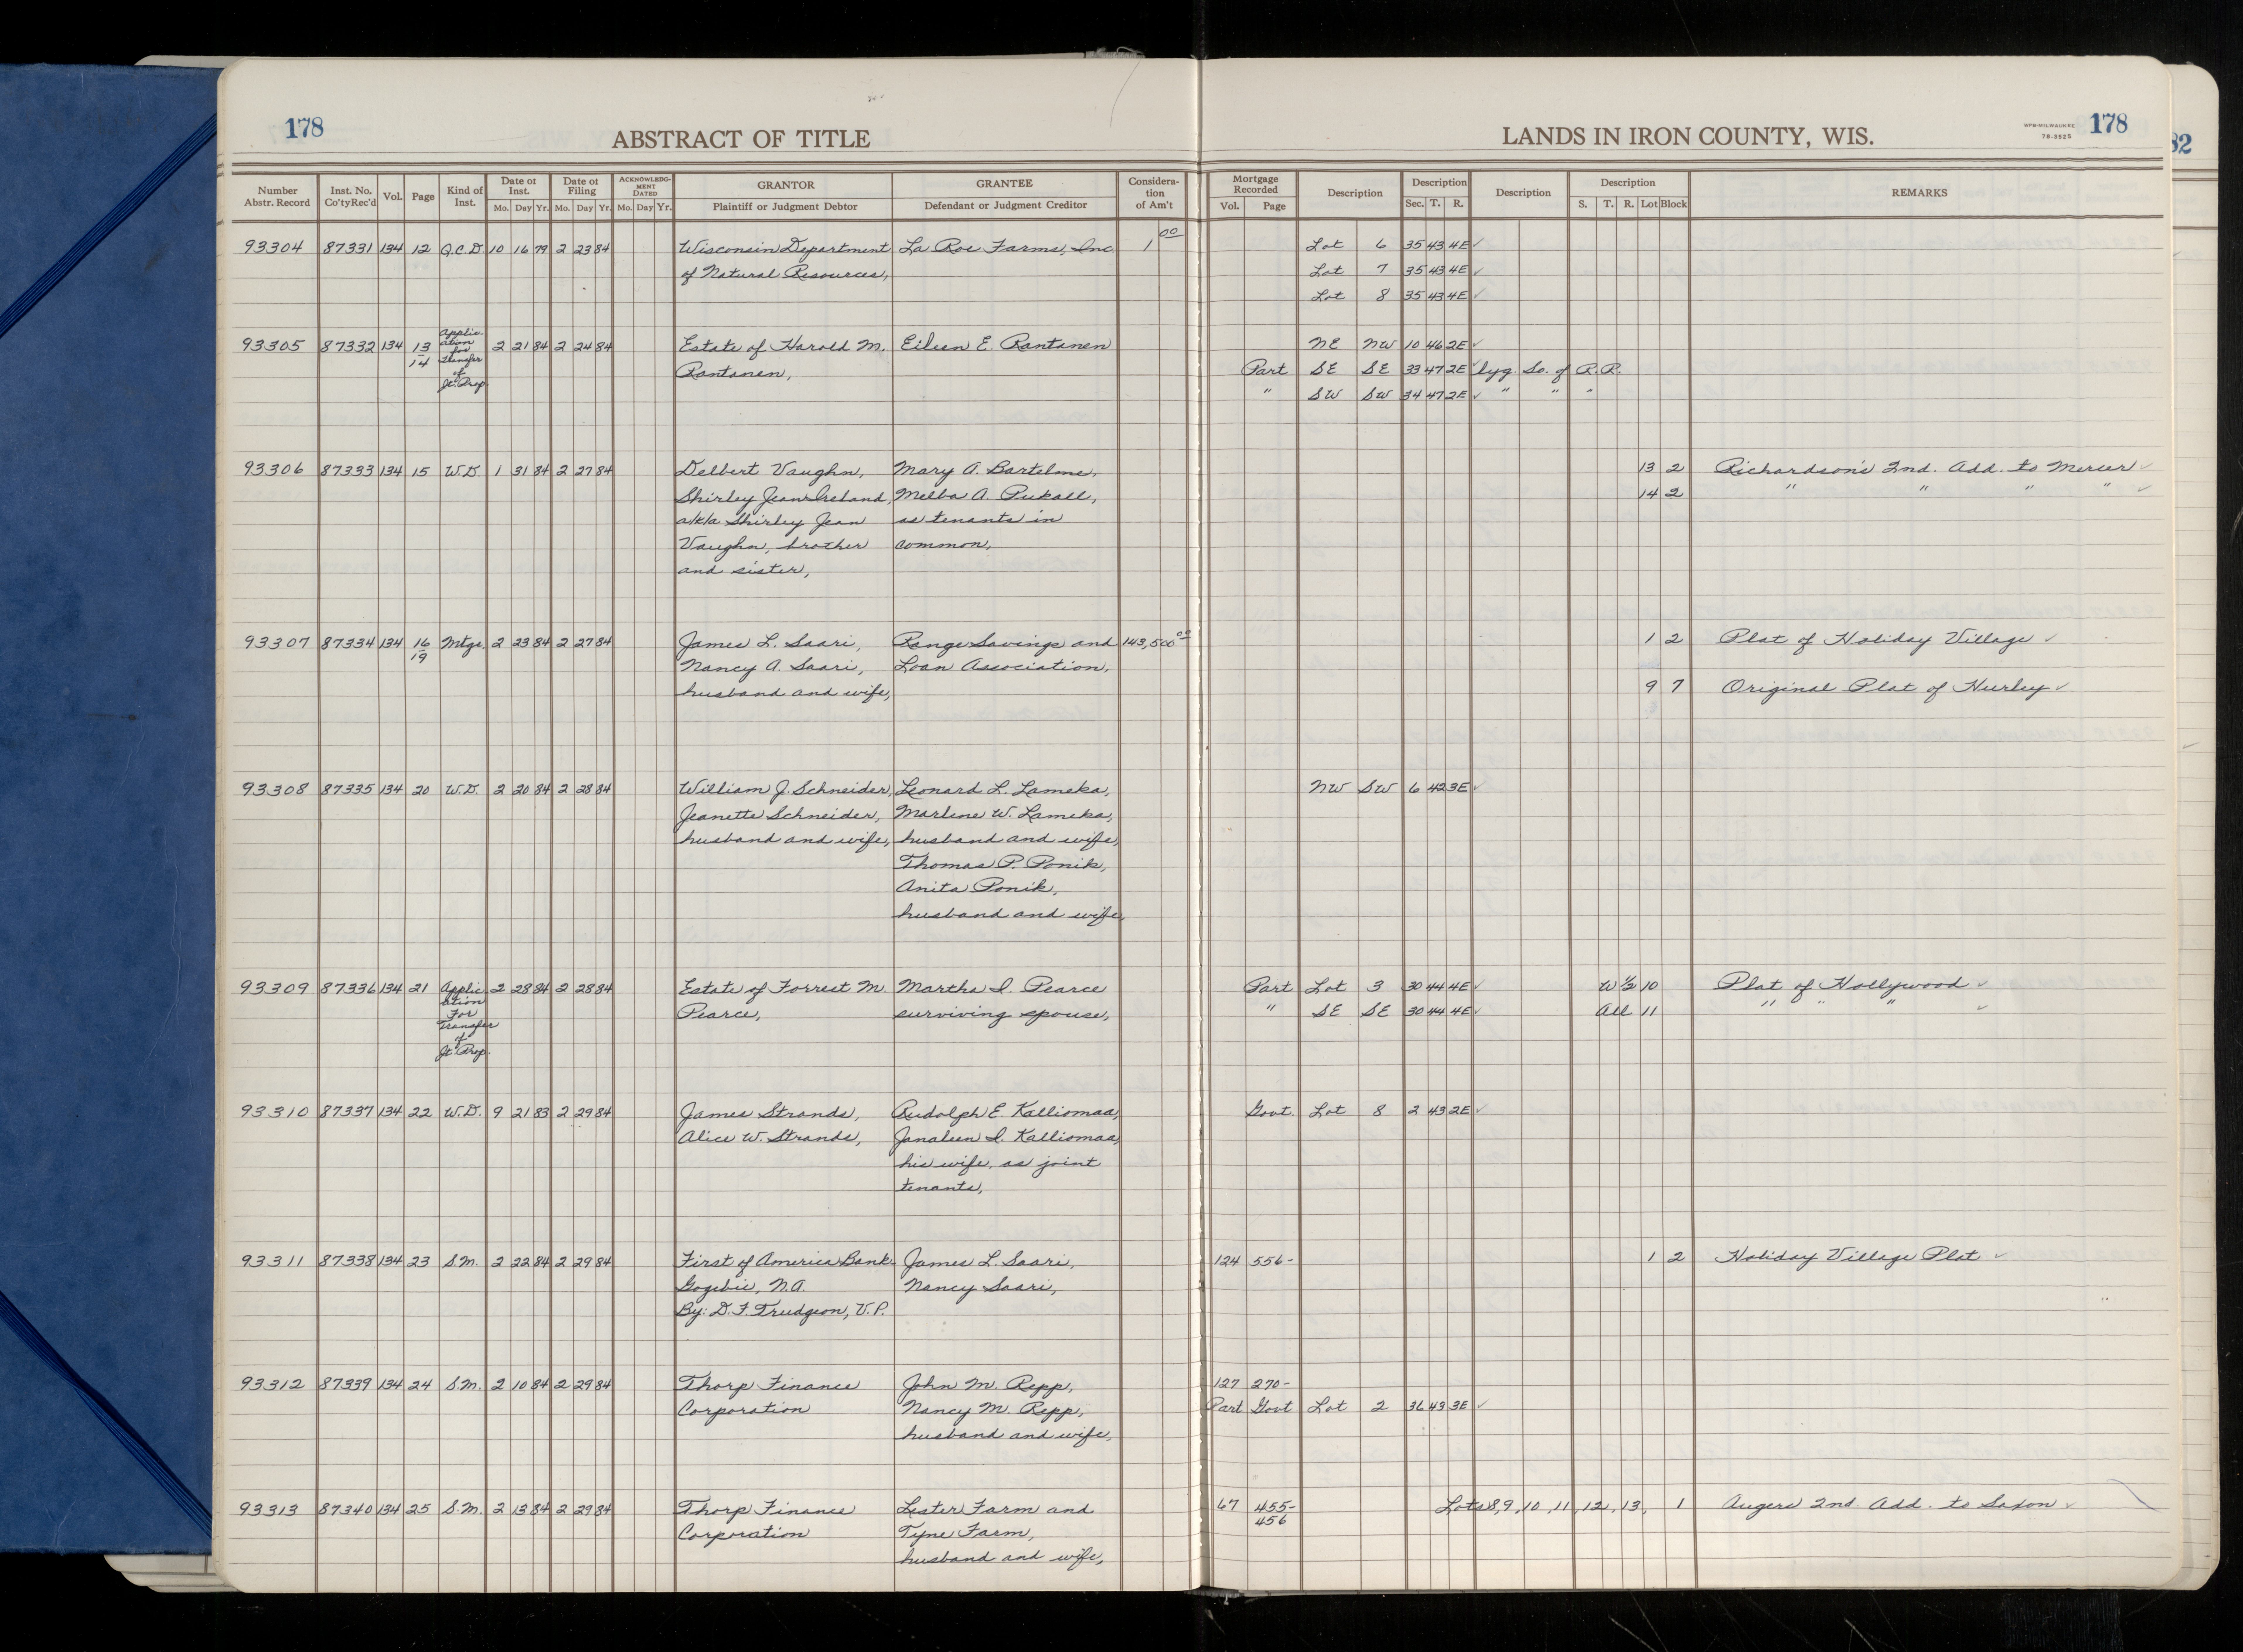 178
ABSTRACT OF TITLE
LANDS IN IRON COUNTY, WIS.
WPB-MILWAUKEE
78-3925
178
82
Number Abstr. Record | Inst. No. Co'ty Rec'd | Vol. | Page | Kind of Inst. | Date of Inst. Mo. Day Yr. | Date of Filing Mo. Day Yr. | ACKNOWLEDGMENT DATED Mo. Day Yr. | GRANTOR Plaintiff or Judgment Debtor | GRANTEE Defendant or Judgment Creditor | Consideration of Am't | Mortgage Recorded Vol. Page | Description | Description Sec. T. R. | Description | Description S. T. R. Lot Block | REMARKS
93304 87331 134 12 Q.C.D. 10 16 79 2 23 84 Wisconsin Department La Roe Farms, Inc. 1 00 Lot 6 35 43 4E ✓
of Natural Resources, Lot 7 35 43 4E ✓
Lot 8 35 43 4E ✓
93305 87332 134 13/14 Application for transfer of Jt. Prop. 2 21 84 2 24 84 Estate of Harold M. Eileen E. Rantanen NE NW 10 46 2E ✓
Rantanen, Part SE SE 33 47 2E ✓ lyg. So. of R.R.
" SW SW 34 47 2E ✓ " " "
93306 87333 134 15 W.D. 1 31 84 2 27 84 Delbert Vaughn, Mary A. Bartelme, 13 2 Richardson's 2nd. Add. to Mercer ✓
Shirley Jean Ireland, Melba A. Pukall, 14 2 " " " " ✓
a/k/a Shirley Jean as tenants in
Vaughn, brother common,
and sister,
93307 87334 134 16/19 Mtge. 2 23 84 2 27 84 James L. Saari, Range Savings and 143,500 00 1 2 Plat of Holiday Village ✓
Nancy A. Saari, Loan Association,
husband and wife, 9 7 Original Plat of Hurley ✓
93308 87335 134 20 W.D. 2 20 84 2 28 84 William J. Schneider, Leonard L. Lameka, NW SW 6 42 3E ✓
Jeanette Schneider, Marlene W. Lameka,
husband and wife, husband and wife,
Thomas P. Ponik,
Anita Ponik,
husband and wife,
93309 87336 134 21 Application For Transfer of Jt. Prop. 2 28 84 2 28 84 Estate of Forrest M. Martha I. Pearce Part Lot 3 30 44 4E ✓ W ½ 10 Plat of Hollywood ✓
Pearce, surviving spouse, " SE SE 30 44 4E ✓ All 11 " " " ✓
93310 87337 134 22 W.D. 9 21 83 2 29 84 James Strands, Rudolph E. Kalliomaa, Govt. Lot 8 2 43 2E ✓
Alice W. Strands, Janaleen I. Kalliomaa,
his wife, as joint
tenants,
93311 87338 134 23 S.M. 2 22 84 2 29 84 First of America Bank- James L. Saari, 124 556- 1 2 Holiday Village Plat ✓
Gogebic, N.A. Nancy Saari,
By: D.F. Trudgeon, V.P.
93312 87339 134 24 S.M. 2 10 84 2 29 84 Thorp Finance John M. Repp, 127 270-
Corporation Nancy M. Repp, Part Govt Lot 2 36 43 3E ✓
husband and wife,
93313 87340 134 25 S.M. 2 13 84 2 29 84 Thorp Finance Lester Farm and 67 455- Lots 8, 9, 10, 11, 12, 13, 1 Augers 2nd Add. to Saxon ✓
Corporation Tyne Farm, 456
husband and wife,